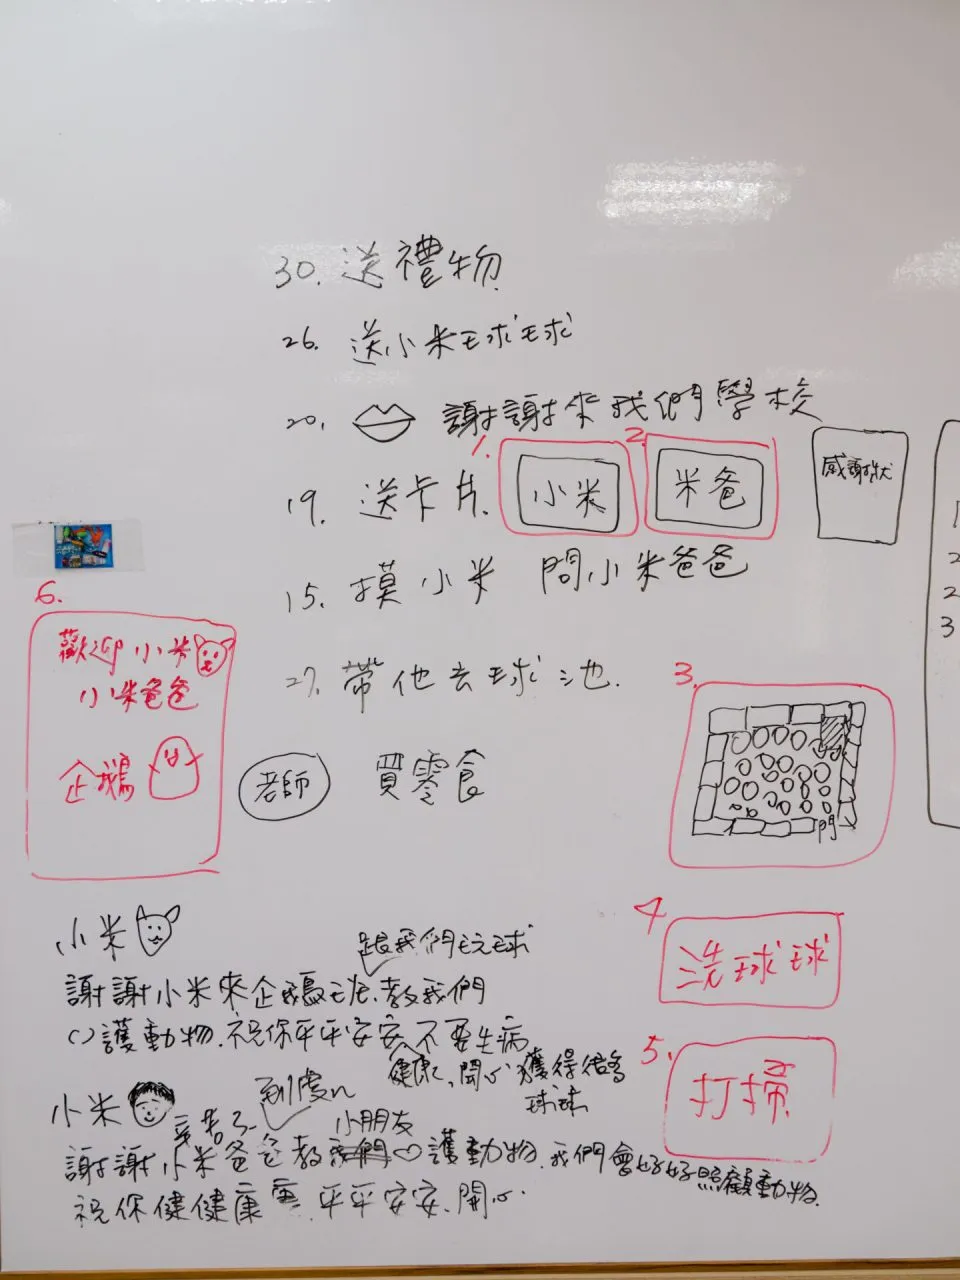 30. 送禮物
26. 送小米球球
20. 謝謝來我們學校
19. 送卡片
1. 小米
2. 米爸
感謝狀
15. 摸小米 問小米爸爸
27. 帶他去球池
3.
門
老師 買零食
6.
歡迎小米
小米爸爸
企鵝
4
洗球球
5.
打掃
小米
跟我們玩球
謝謝小米來企鵝班 教我們
護動物 祝你平平安安 不要生病
健康、開心 獲得很多
球球
小米
辛苦了 到處
小朋友
謝謝小米爸爸教我們♡護動物 我們會好好照顧動物
祝你健健康康 平平安安 開心
2
2
3